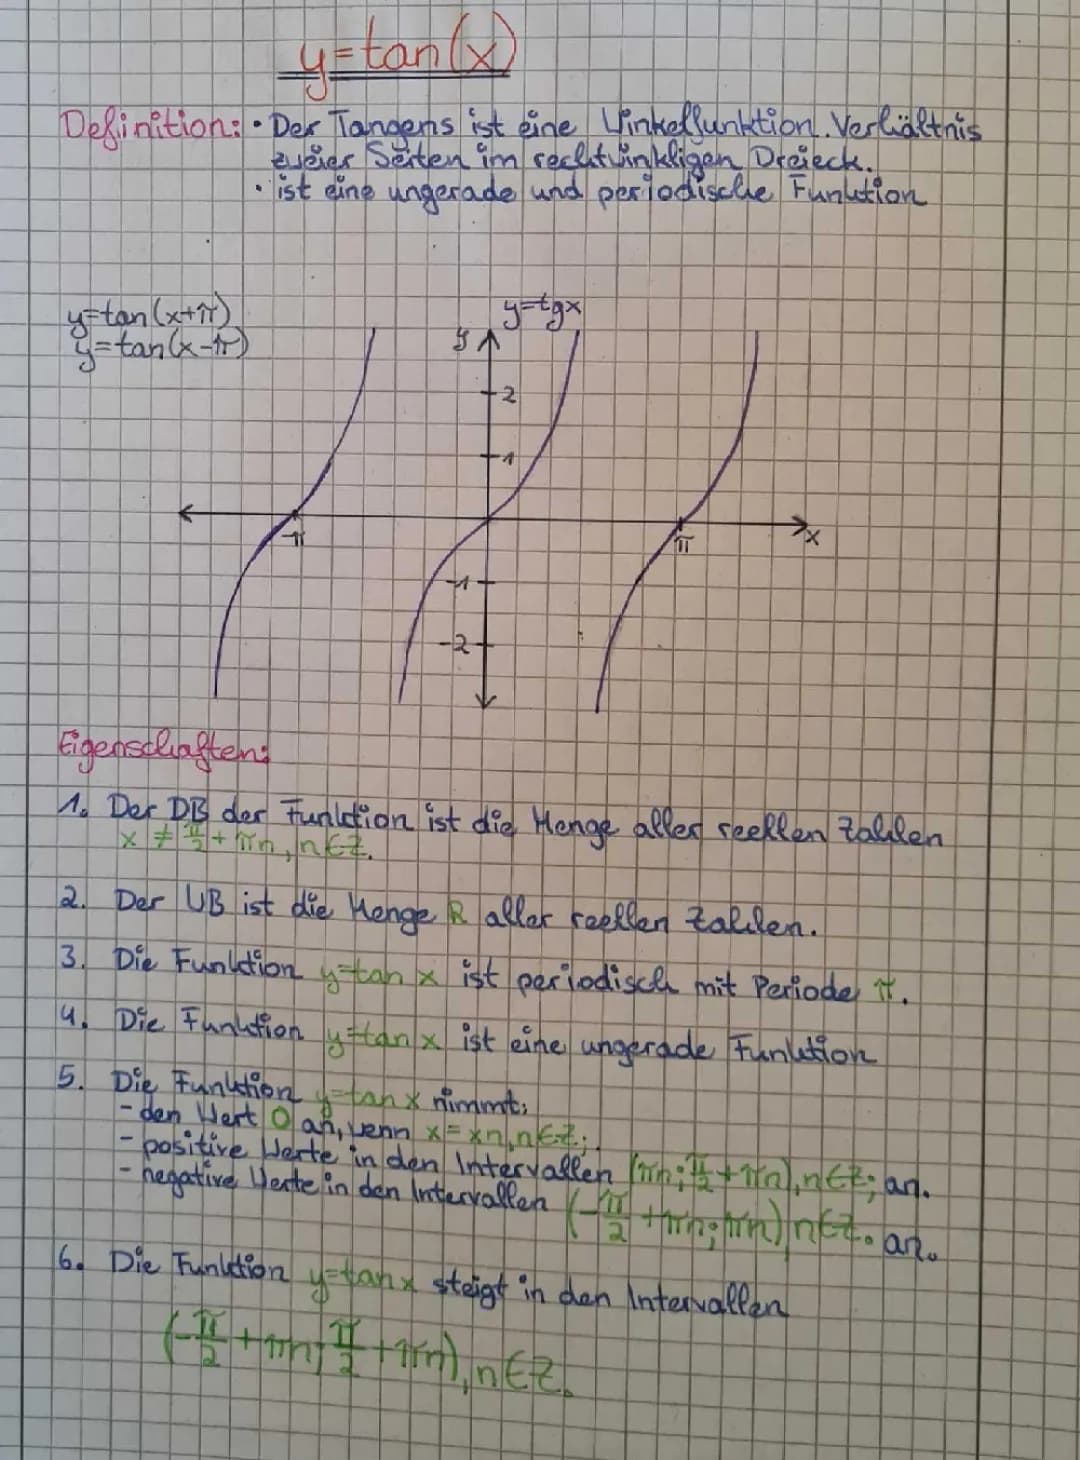 y=tan(x)
Definition: • Der Tangens ist eine Winkelfunktion. Verhältnis
zweier Seiten im rechtwinkligen Dreieck.
• ist eine ungerade und periodische Funktion
y=tan(x+π)
y=tan(x-π)
y=tgx
y
2
1
-π
π
x
-1
-2
Eigenschaften:
1. Der DB der Funktion ist die Menge aller reellen Zahlen
x ≠ π/2 + πn, n∈Z.
2. Der WB ist die Menge R aller reellen Zahlen.
3. Die Funktion y=tan x ist periodisch mit Periode π.
4. Die Funktion y=tan x ist eine ungerade Funktion
5. Die Funktion y=tan x nimmt:
- den Wert 0 an, wenn x=xn, n∈Z;
- positive Werte in den Intervallen (πn; π/2 + πn), n∈Z; an.
- negative Werte in den Intervallen (-π/2 + πn; πn) n∈Z. an.
6. Die Funktion y=tan x steigt in den Intervallen
(-π/2 + πn; π/2 + πn), n∈Z.